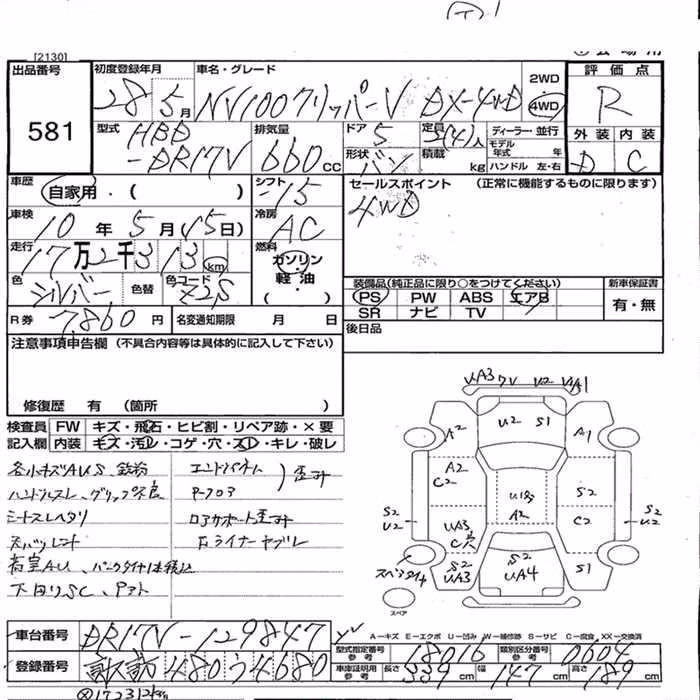 [2130]
出品番号 581
初度登録年月 28年5月
車名・グレード NV100クリッパーV DX-4WD
2WD
4WD
評価点 R
外装 D 内装 C
型式 HBD-DR17V
排気量 660cc
ドア 5
形状 バン
定員 人
積載 kg
ディーラー・並行
モデル年式 年式
ハンドル 左・右
車歴 自家用・( )
シフト 15
車検 10年5月(15日)
冷房 AC
走行 17万2千313km
燃料 ガソリン・軽油・( )
色 シルバー 色替 色コード Z2S
R券 7,860円 名変通知期限 月 日
セールスポイント (正常に機能するものに限ります)
4WD
装備品(純正品に限り○をつけてください)
PS PW ABS エアB
SR ナビ TV
新車保証書
有・無
後日品
注意事項申告欄(不具合内容等は具体的に記入して下さい)
修復歴 有 (箇所 )
検査員記入欄
FW キズ・飛石・ヒビ割・リペア跡・×要
内装 キズ・汚れ・コゲ・穴・スレ・キレ・破レ
各小キズAUS、鉄粉
ハンドルスレ、グリップ不良
シートスレヘタリ
下回りSC、
エンドパネル
フロア
ロアサポート歪ミ
歪ミ
UA3 V U2
U2 S1
A2 A1
A2
C2
S2
S2
U2
UA3
C穴
A2
C2
S2
U2
スペアタイヤ
S2
UA3
S2
UA4
S1
スペア
A―キズ E―エクボ U―凹み W―補修跡 S―サビ C―腐食、XX―交換済
車台番号 DR17V-129847
登録番号 諏訪 480 う 4680
型式指定番号 参考 18016
類別区分番号 参考 0604
車庫証明用 参考 長さ 339cm 幅 147cm 高さ 189cm